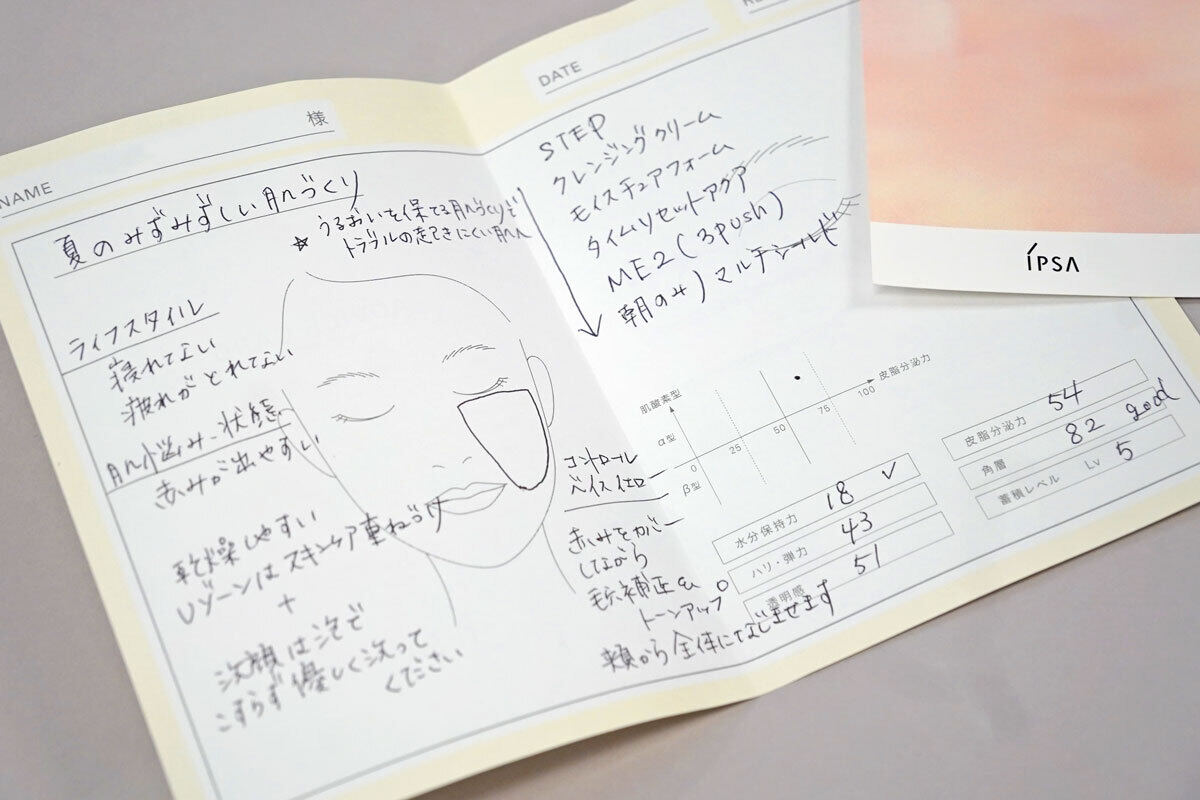 NAME
様
夏のみずみずしい肌づくり
☆ うるおいを保てる肌づくりで
トラブルの起きにくい肌へ
ライフスタイル
寝れてない
疲れがとれてない
肌悩み・状態
赤みが出やすい
乾燥しやすい
Uゾーンはスキンケア重ねづけ
+
洗顔は泡で
こすらず優しく洗って
ください
DATE
STEP
クレンジングクリーム
モイスチュアフォーム
タイムリセットアクア
ME2(3push)
朝のみ)マルチシールド
IPSA
コントロール
ベイスイエロ
赤みをカバー
しながら
毛穴補正&
トーンアップ
頬から全体になじませます
肌酸素型
α型
β型
0
25
50
75
100
皮脂分泌力
水分保持力 18 ✓
ハリ・弾力 43
透明感 51
皮脂分泌力 54
角層 82 good
蓄積レベル Lv 5